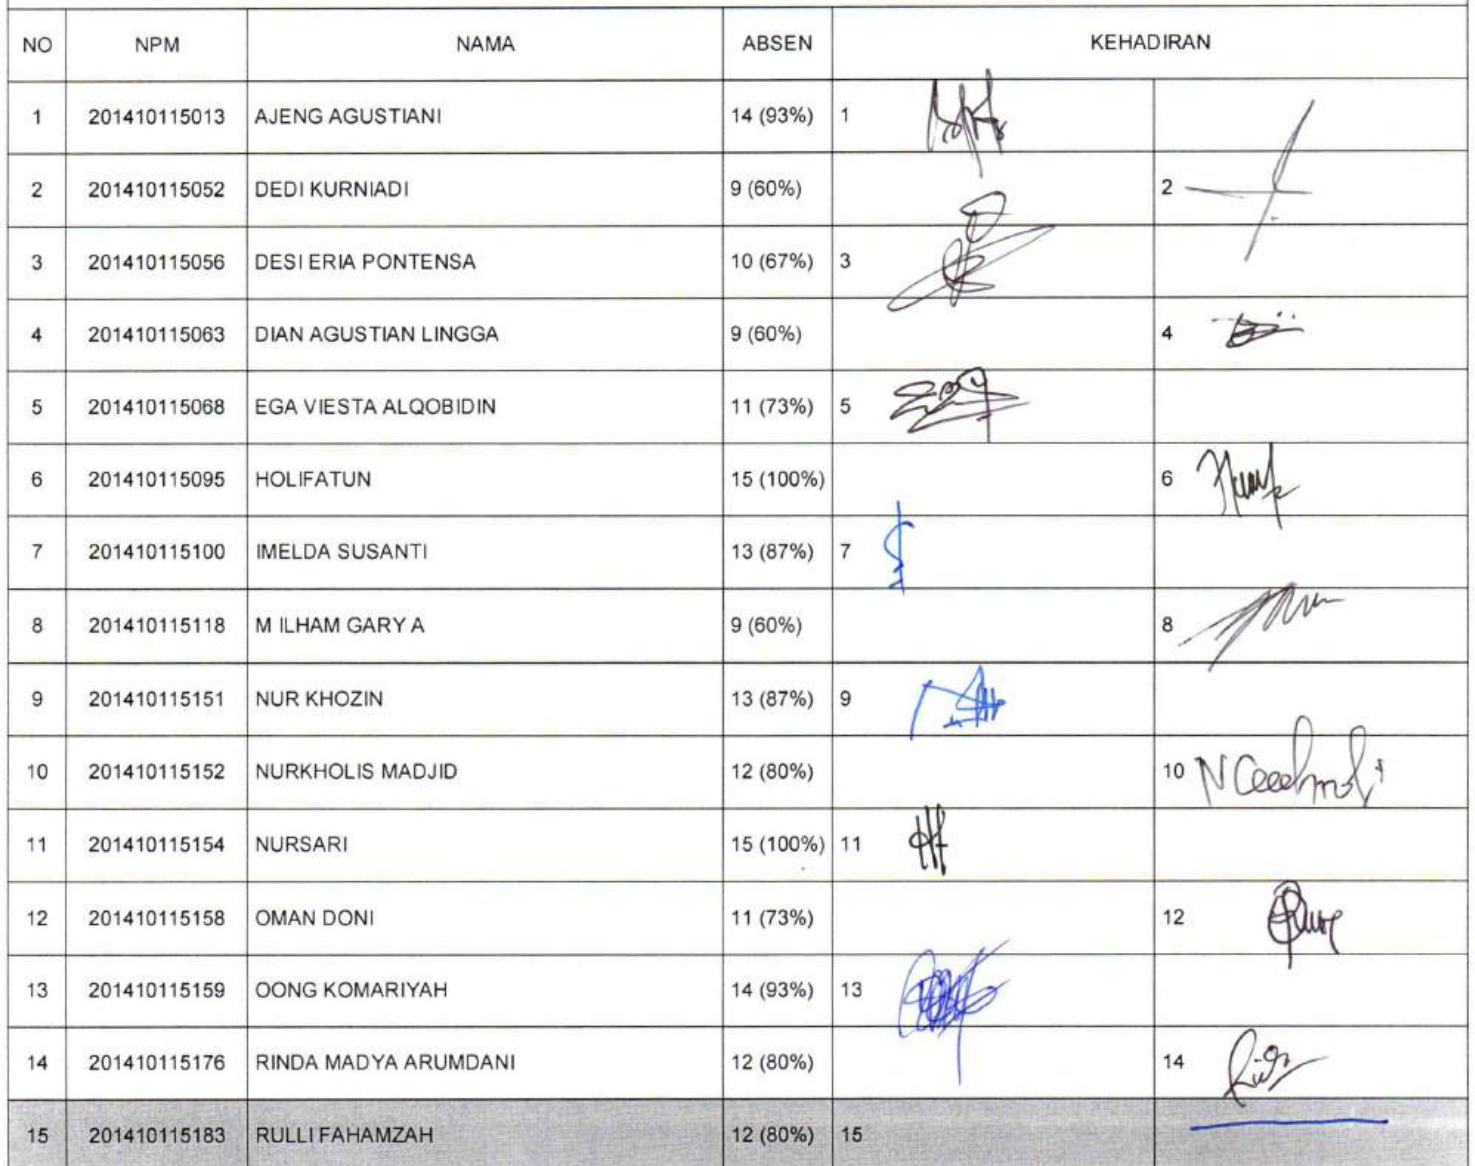 NO NPM NAMA ABSEN KEHADIRAN
1 201410115013 AJENG AGUSTIANI 14 (93%) 1
2 201410115052 DEDI KURNIADI 9 (60%) 2
3 201410115056 DESI ERIA PONTENSA 10 (67%) 3
4 201410115063 DIAN AGUSTIAN LINGGA 9 (60%) 4
5 201410115068 EGA VIESTA ALQOBIDIN 11 (73%) 5
6 201410115095 HOLIFATUN 15 (100%) 6
7 201410115100 IMELDA SUSANTI 13 (87%) 7
8 201410115118 M ILHAM GARY A 9 (60%) 8
9 201410115151 NUR KHOZIN 13 (87%) 9
10 201410115152 NURKHOLIS MADJID 12 (80%) 10
11 201410115154 NURSARI 15 (100%) 11
12 201410115158 OMAN DONI 11 (73%) 12
13 201410115159 OONG KOMARIYAH 14 (93%) 13
14 201410115176 RINDA MADYA ARUMDANI 12 (80%) 14
15 201410115183 RULLI FAHAMZAH 12 (80%) 15